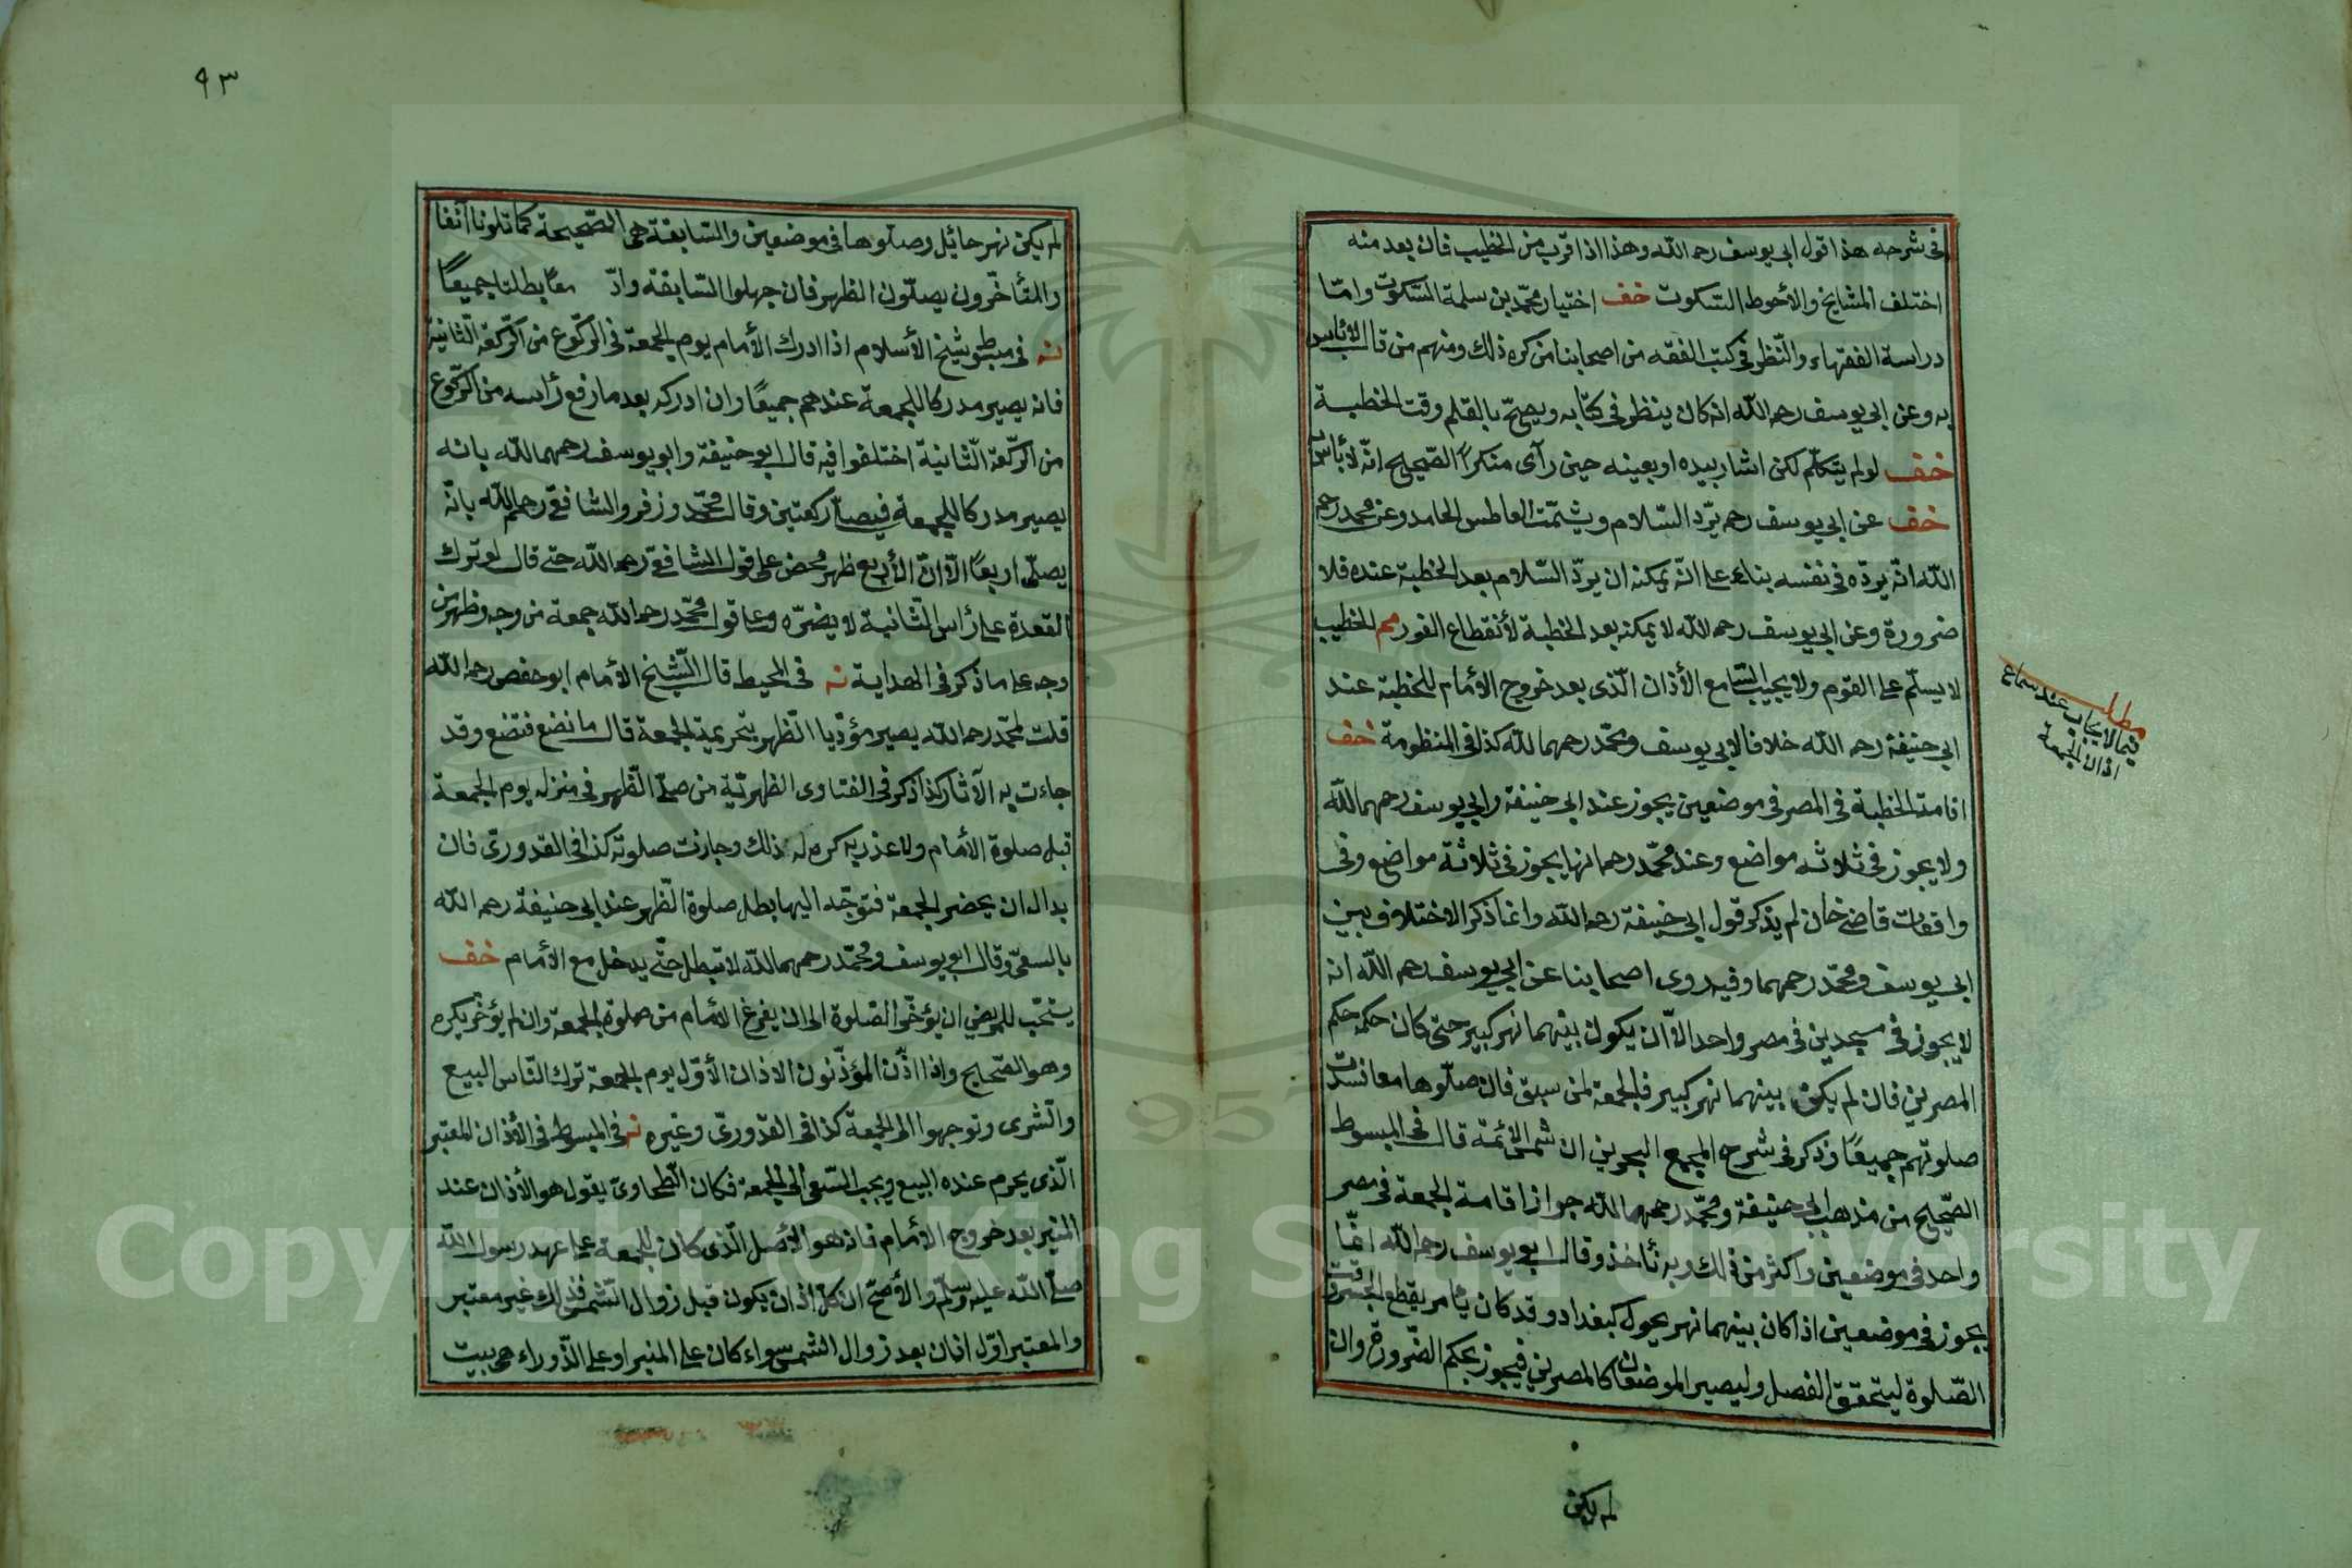 فى شرحه هذا قول ابى يوسف رحمه الله وهذا اذا قرب من الخطيب فان بعد منه
اختلف المشايخ والأحوط السّكوت خف اختيار محمّد بن سلمة السّكوت وامّا
دراسة الفقهاء والنّظر فى كتب الفقه من اصحابنا من كره ذلك ومنهم من قال لا بأس
به وعن ابى يوسف رحمه الله انه كان ينظر فى كتابه ويصحّح بالقلم وقت الخطبة
خف لو لم يتكلّم لكن اشار بيده او بعينه حين رآى منكراً الصّحيح انّه لا بأس
خف عن ابى يوسف رحمه يردّ السّلام ويشمّت العاطس الحامد وعن محمد رحمه
الله انّه يردّه فى نفسه بناء على انّه يمكنه ان يردّ السّلام بعد الخطبة عنده فلا
ضرورة وعن ابى يوسف رحمه الله لا يمكنه بعد الخطبة لأنقطاع الفور مم الخطيب
لا يسلّم على القوم ولا يجيب السّامع الأذان الّذى بعد خروج الأمام للخطبة عند
ابى حنيفة رحمه الله خلافا لابى يوسف ومحمّد رحمهما الله كذا فى المنظومة خف
اقامة الخطبة فى المصر فى موضعين يجوز عند ابى حنيفة وابى يوسف رحمهما الله
ولا يجوز فى ثلاثه مواضع وعند محمّد رحمه انها يجوز فى ثلاثة مواضع وفى
واقعات قاضى خان لم يذكر قول ابى حنيفة رحمه الله وانما ذكر الاختلاف بين
ابى يوسف ومحمّد رحمهما وفيه روى اصحابنا عن ابى يوسف رحمه الله انه
لا يجوز فى مسجدين فى مصر واحد الاّ ان يكون بينهما نهر كبير حتى كان حكمه حكم
المصرين فان لم يكن بينهما نهر كبير فالجمعة لمن سبق فان صلّوها معا فسدت
صلوتهم جميعًا وذكر فى شرح المجمع البحرين ان شمس الأئمة قال فى المبسوط
الصّحيح من مذهب ابى حنيفة ومحمّد رحمهما الله جواز اقامة الجمعة فى مصر
واحد فى موضعين واكثر من ذلك وبه نأخذ وقال ابو يوسف رحمه الله انّما
يجوز فى موضعين اذا كان بينهما نهر يحول كبغداد وقد كان يأمر بقطع الجسر وقت
الصّلوة ليتحقق الفصل وليصير الموضعان كالمصرين فيجوز بحكم الضّرورة وان
لم يكن
مطلب
فيما لا يجاب عند سماع
اذان الجمعة
٩٣
لم يكن نهر حائيل وصلوها فى موضعين والسّابقة هى الصّحيحة كما تلونا آنفا
والمتأخّرون يصلّون الظهر فان جهلوا السّابقة وادّ معًا بطلتا جميعًا
نه فى مبسوط شيخ الأسلام اذا ادرك الأمام يوم الجمعة فى الركّوع من الركّعة الثّانية
فانه يصير مدركا للجمعة عندهم جميعًا وان ادركه بعد ما رفع رأسه من الركّوع
من الركّعة الثّانية اختلفوا فيه قال ابو حنيفة وابو يوسف رحمهما الله بانه
يصير مدركا للجمعة فيصلّى ركعتين وقال محمّد وزفر والشافعى رحمهم الله بانّه
يصلّى اربعًا الاّ انّ الأربع ظهر محض على قول الشافعى رحمه الله حتى قال لو ترك
القعدة على رأس الثّانية لا يضرّه وعلى قول محمّد رحمه الله جمعة من وجه وظهر من
وجه على ما ذكر فى الهداية نه فى المحيط قال الشّيخ الأمام ابو حفص رحمه الله
قلت لمحمّد رحمه الله يصير مؤدّيا الظّهر بتحريمة الجمعة قال ما نصنع فتصنع وقد
جاءت به الآثار كذا ذكر فى الفتاوى الظهريّة من صلّى الظّهر فى منزله يوم الجمعة
قبل صلوة الأمام ولا عذر به كره له ذلك وجازت صلوته كذا فى القدورى فان
بدا له ان يحضر الجمعة فتوجّه اليها بطل صلوة الظّهر عند ابى حنيفة رحمه الله
بالسعى وقال ابو يوسف ومحمّد رحمهما الله لا تبطل حتّى يدخل مع الأمام خف
يستحّب للمريض ان يؤخّر الصّلوة الى ان يفرغ الأمام من صلوة الجمعة وان لم يؤخّر يكره
وهو الصّحيح واذا اذّن المؤذّنون الاذان الأوّل يوم الجمعة ترك النّاس البيع
والشرى وتوجهوا الى الجمعة كذا فى القدورىّ وغيره نه فى المبسوط فى الأذان المعتبر
الّذى يحرم عنده البيع ويجب السّعى الى الجمعة فكان الطّحاوىّ يقول هو الأذان عند
المنبر بعد خروج الأمام فانه هو الأصل الّذى كان للجمعة على عهد رسول الله
صلّى الله عليه وسلّم والأصحّ ان كلّ اذان يكون قبل زوال الشّمس فذلك غير معتبر
والمعتبر اوّل اذان بعد زوال الشمس سواء كان على المنبر او على الزّوراء هى بيت
Copyright © King Saud University